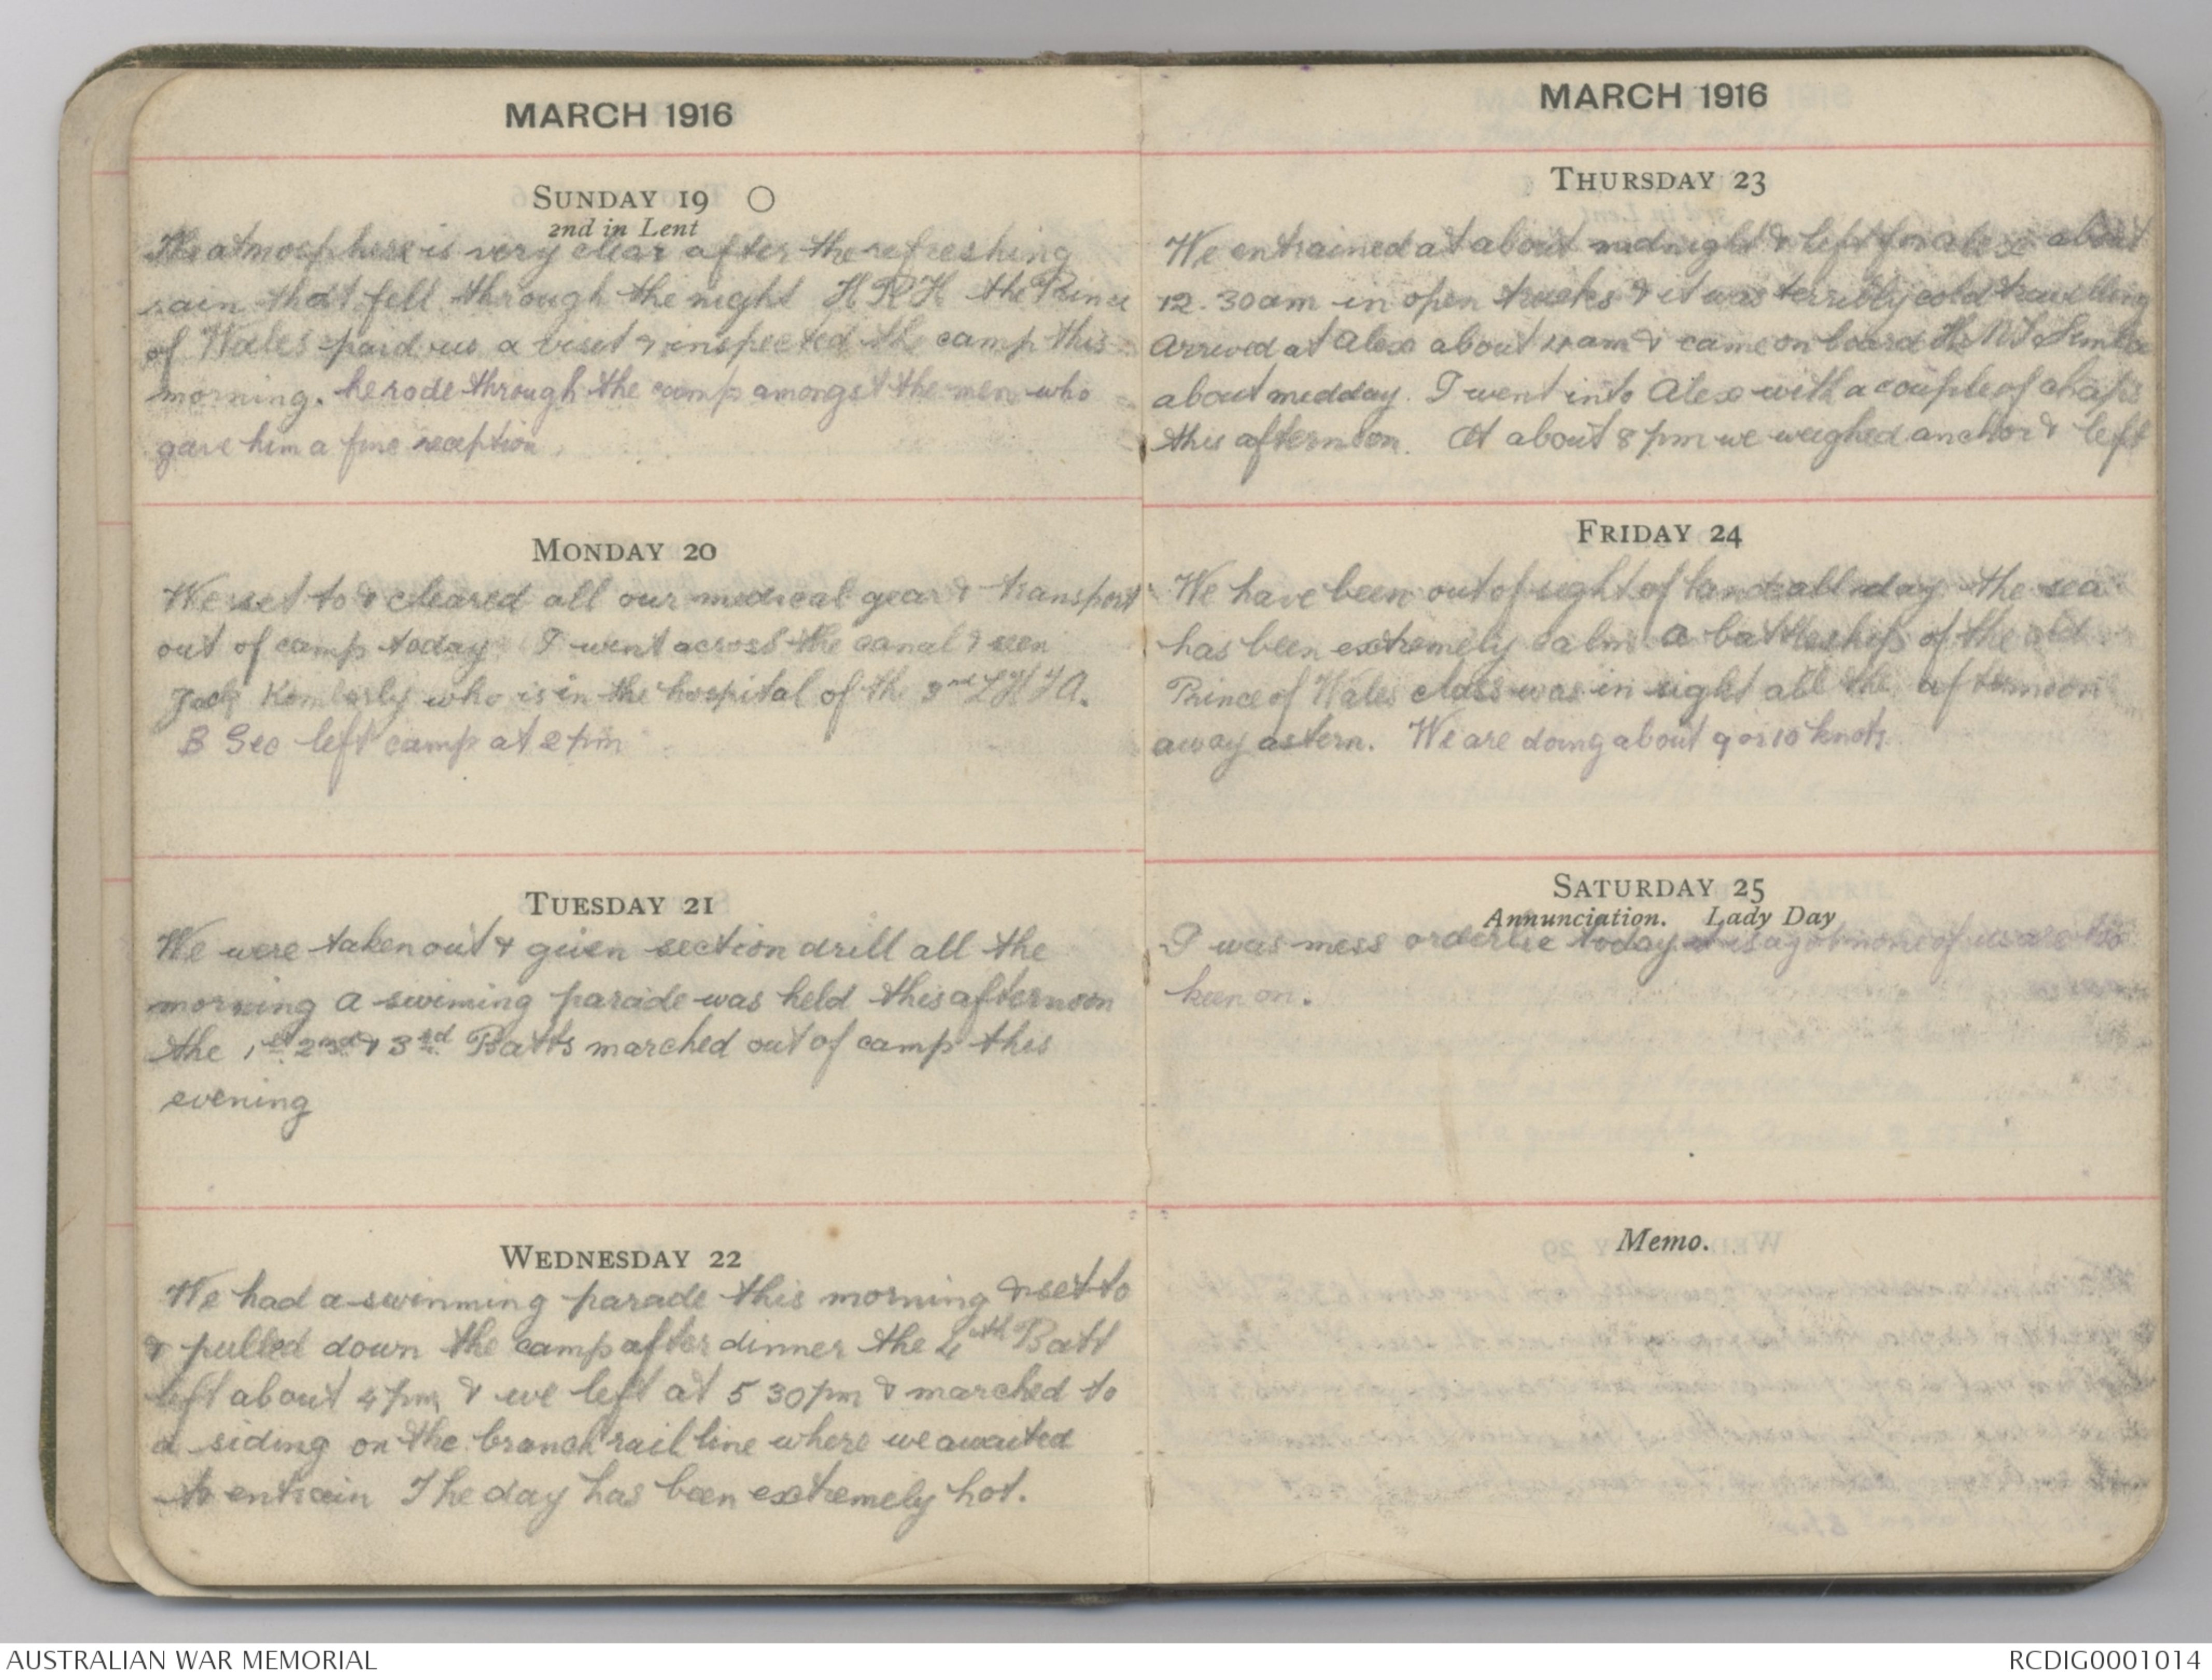 MARCH 1916
SUNDAY 19
2nd in Lent
The atmosphere is very clear after the refreshing
rain that fell through the night H R H the Prince
of Wales paid us a visit & inspected the camp this
morning. he rode through the camp amongst the men who
gave him a fine reception
MONDAY 20
We set to & cleared all our medical gear & transport
out of camp today I went across the canal & seen
Jack who is in the hospital of the 3rd L H F A.
B Sec left camp at 2 pm
TUESDAY 21
We were taken out & given section drill all the
morning a swiming parade was held this afternoon
the 1st 2nd & 3rd Batts marched out of camp this
evening
WEDNESDAY 22
We had a swimming parade this morning & set to
& pulled down the camp after dinner the 4th Batt
left about 4 pm & we left at 5 30 pm & marched to
a siding on the branch rail line where we awaited
to entrain The day has been extremely hot.
MARCH 1916
THURSDAY 23
We entrained at about midnight & left for alex about
12.30am in open trucks & it was terribly cold travelling
arrived at Alex about am & came on board the Simla
about midday. I went into Alex with a couple of chaps
this afternoon. At about 8 pm we weighed anchor & left
FRIDAY 24
We have been out of sight of land all day the sea
has been extremely calm a battleship of the old
Prince of Wales class was in sight all the afternoon
away astern. We are doing about 9 or 10 knots
SATURDAY 25
Annunciation. Lady Day
I was mess orderlie today its a job none of us are too
keen on.
Memo.
AUSTRALIAN WAR MEMORIAL
RCDIG0001014